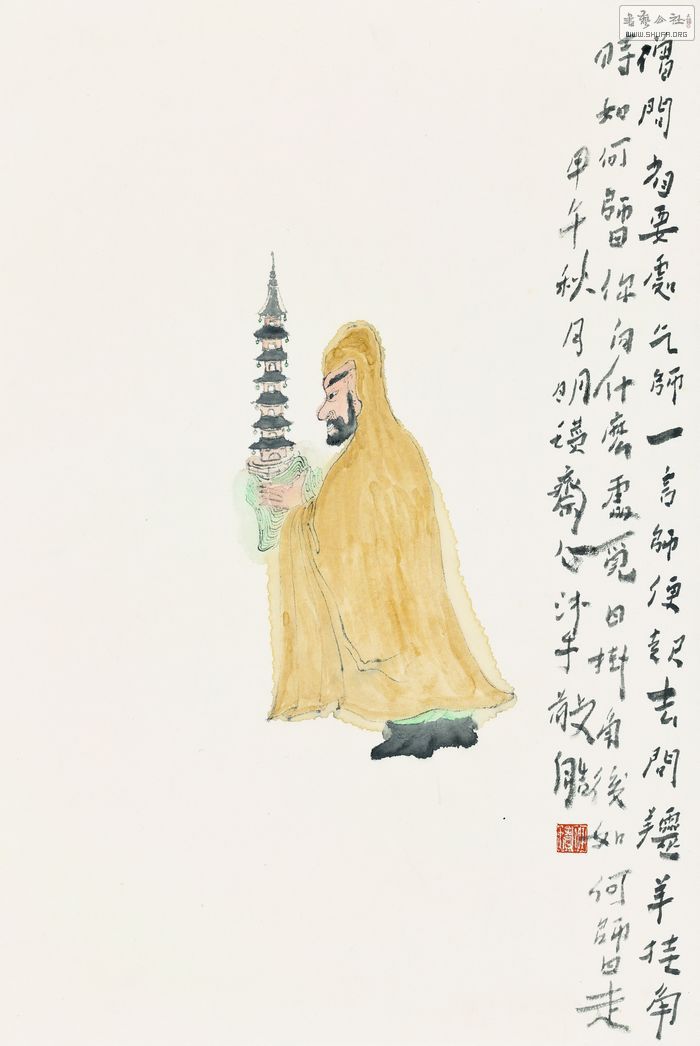 僧問省要處乞師一言師便起去問羚羊挂角
時如何師曰你向什麽處覓曰掛角後如何師曰走
甲午秋月明 齋 心沙手散
書藝公社
WWW.SHUFA.ORG